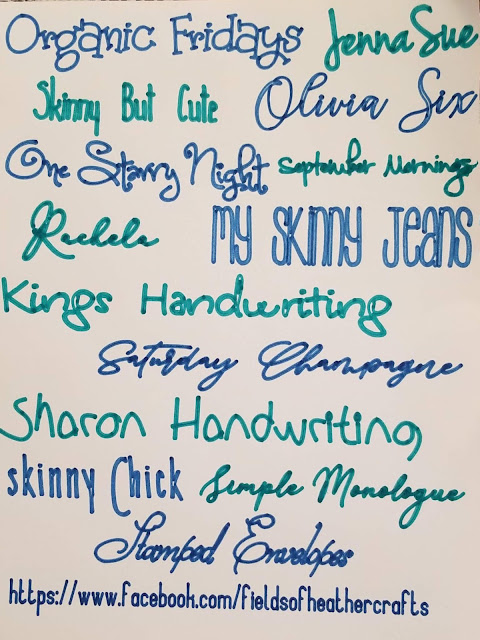 Organic Fridays Jenna Sue
Skinny But Cute Olivia Six
One Starry Night September Mornings
Rachela My Skinny Jeans
Kings Handwriting
Saturday Champagne
Sharon Handwriting
skinny Chick Simple Monologue
Stamped Envelopes
https://www.facebook.com/fieldsofheathercrafts